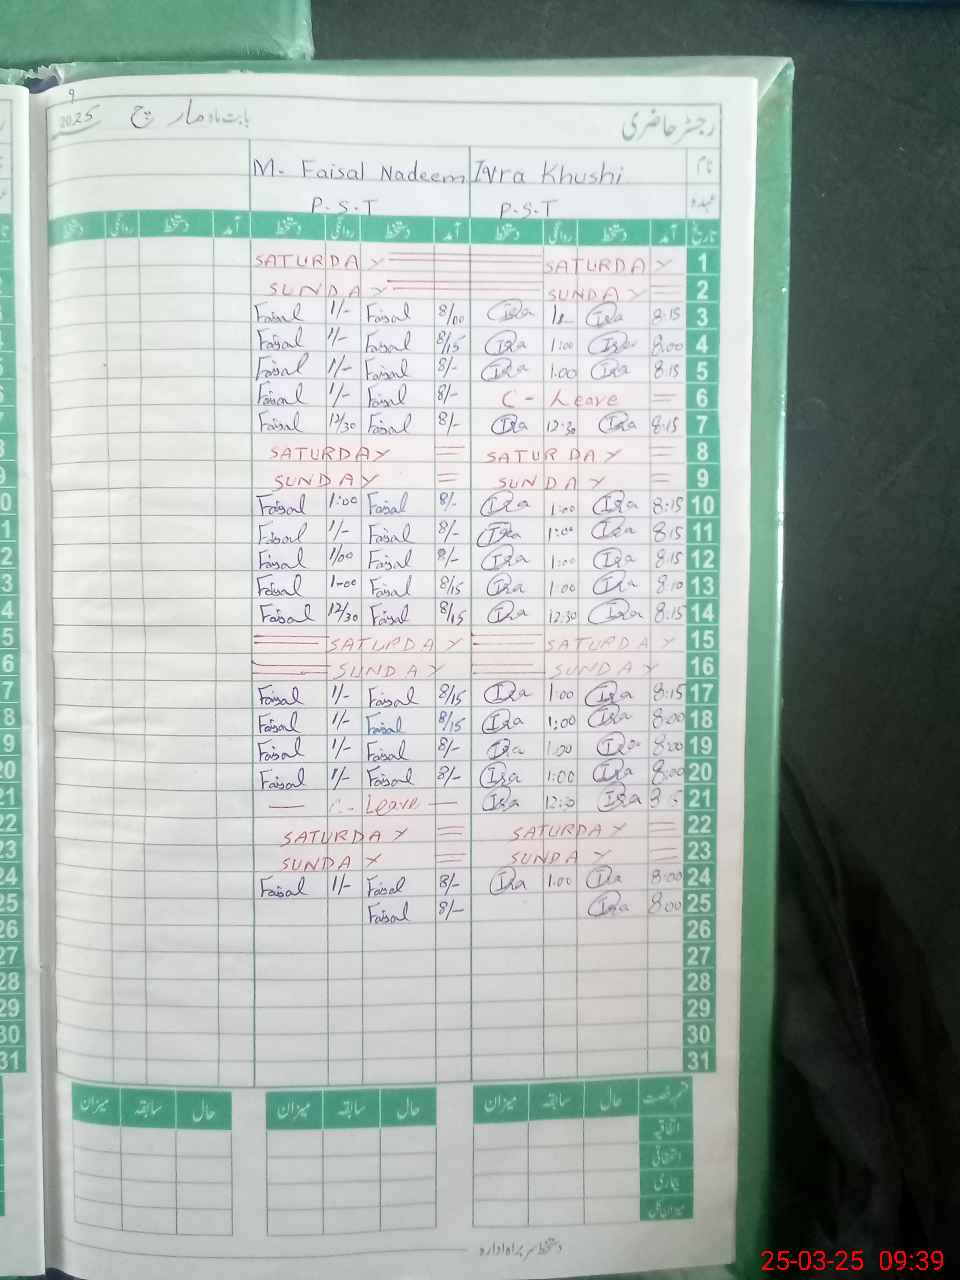 9
رجسٹر حاضری بابت ماہ مارچ 2025
نام Iqra Khushi M. Faisal Nadeem
عہدہ P.S.T P.S.T
تاریخ آمد دستخط روانگی دستخط آمد دستخط روانگی دستخط آمد دستخط روانگی دستخط
SATURDAY SATURDAY 1
SUNDAY SUNDAY 2
Faisal 1/- Faisal 8/00 Iqra Iqra 8:15 3
Faisal 1/- Faisal 8/15 Iqra 1:00 Iqra 8:00 4
Faisal 1/- Faisal 8/- Iqra 1:00 Iqra 8:15 5
Faisal 1/- Faisal 8/- C - Leave = 6
Faisal 12/30 Faisal 8/- Iqra 12:30 Iqra 8:15 7
SATURDAY = SATURDAY = 8
SUNDAY = SUNDAY = 9
Faisal 1:00 Faisal 8/- Iqra 1:00 Iqra 8:15 10
Faisal 1/- Faisal 8/- Iqra 1:00 Iqra 8:15 11
Faisal 1/00 Faisal 8/- Iqra 1:00 Iqra 8:15 12
Faisal 1-00 Faisal 8/15 Iqra 1:00 Iqra 8:10 13
Faisal 12/30 Faisal 8/15 Iqra 12:30 Iqra 8:15 14
SATURDAY SATURDAY 15
SUNDAY SUNDAY 16
Faisal 1/- Faisal 8/15 Iqra 1:00 Iqra 8:15 17
Faisal 1/- Faisal 8/15 Iqra 1:00 Iqra 8:00 18
Faisal 1/- Faisal 8/- Iqra 1:00 Iqra 8:00 19
Faisal 1/- Faisal 8/- Iqra 1:00 Iqra 8:00 20
— C - Leave — Iqra Iqra 21
SATURDAY = SATURDAY = 22
SUNDAY = SUNDAY = 23
Faisal 1/- Faisal 8/- Iqra 1:00 Iqra 8:00 24
Faisal 8/- Iqra 8:00 25
26
27
28
29
30
31
قسم رخصت حال سابقہ میزان حال سابقہ میزان حال سابقہ میزان
اتفاقیہ
استحقاقی
بیماری
میزان کل
دستخط سربراہ ادارہ
25-03-25 09:39